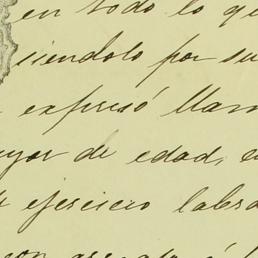 en todo lo qu
siendolo por su
expresó llam
yor de edad, c
ejercicio labra
con